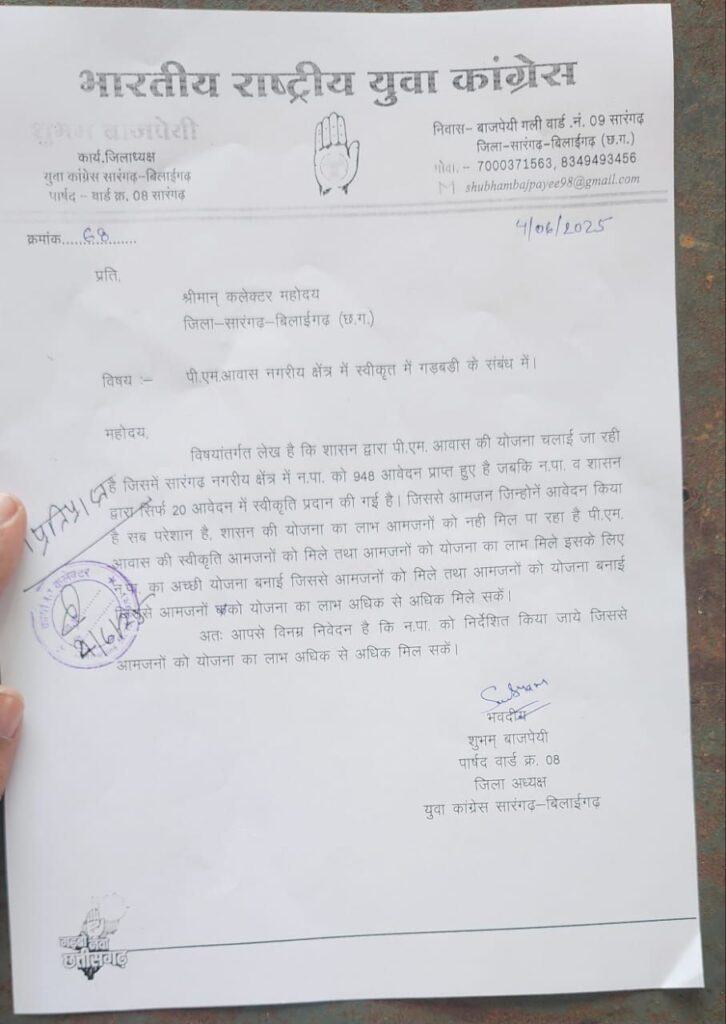 भारतीय राष्ट्रीय युवा कांग्रेस
शुभम बाजपेयी
कार्य.जिलाध्यक्ष
युवा कांग्रेस सारंगढ़–बिलाईगढ़
पार्षद – वार्ड क्र. 08 सारंगढ़
निवास– बाजपेयी गली वार्ड .नं. 09 सारंगढ़
जिला–सारंगढ़–बिलाईगढ़ (छ.ग.)
मोबा.– 7000371563, 8349493456
shubhambajpayee98@gmail.com
क्रमांक.....68.......
4/06/2025
प्रति,
श्रीमान् कलेक्टर महोदय
जिला–सारंगढ़–बिलाईगढ़ (छ.ग.)
विषय :– पी.एम.आवास नगरीय क्षेंत्र में स्वीकृत में गड़बडी के संबंध में।
महोदय,
विषयांतर्गत लेख है कि शासन द्वारा पी.एम. आवास की योजना चलाई जा रही
है जिसमें सारंगढ़ नगरीय क्षेंत्र में न.पा. को 948 आवेदन प्राप्त हुए है जबकि न.पा. व शासन
द्वारा सिर्फ 20 आवेदन में स्वीकृति प्रदान की गई है। जिससे आमजन जिन्होनें आवेदन किया
है सब परेशान है, शासन की योजना का लाभ आमजनों को नही मिल पा रहा है पी.एम.
आवास की स्वीकृति आमजनों को मिले तथा आमजनों को योजना का लाभ मिले इसके लिए
पा. का अच्छी योजना बनाई जिससे आमजनों को मिले तथा आमजनों को योजना बनाई
आमजनों को योजना का लाभ अधिक से अधिक मिले सकें।
अतः आपसे विनम्र निवेदन है कि न.पा. को निर्देशित किया जाये जिससे
आमजनों को योजना का लाभ अधिक से अधिक मिल सकें।
प्रतिप्राप्त
4/6/25
भवदीय
शुभम् बाजपेयी
पार्षद वार्ड क्र. 08
जिला अध्यक्ष
युवा कांग्रेस सारंगढ़–बिलाईगढ़
गढ़बो नवा
छत्तीसगढ़